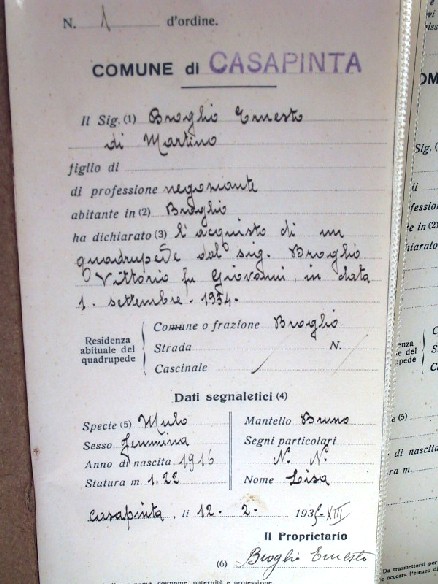 N. 1 d'ordine.
COMUNE di CASAPINTA
Il Sig. (1) Broglio Ernesto
di Martino
figlio di
di professione negoziante
abitante in (2) Broglio
ha dichiarato (3) l'acquisto di un
quadrupede dal sig. Broglio
Vittorio fu Giovanni, in data
1. settembre. 1934.
Residenza abituale del quadrupede
Comune o frazione Broglio
Strada N.
Cascinale
Dati segnaletici (4)
Specie (5) Mulo
Sesso femmina
Anno di nascita 1916
Statura m. 1.22
Mantello Bruno
Segni particolari
N. N.
Nome Lisa
Casapinta, il 12. 2. 1935-XIII
Il Proprietario
(6) Broglio Ernesto